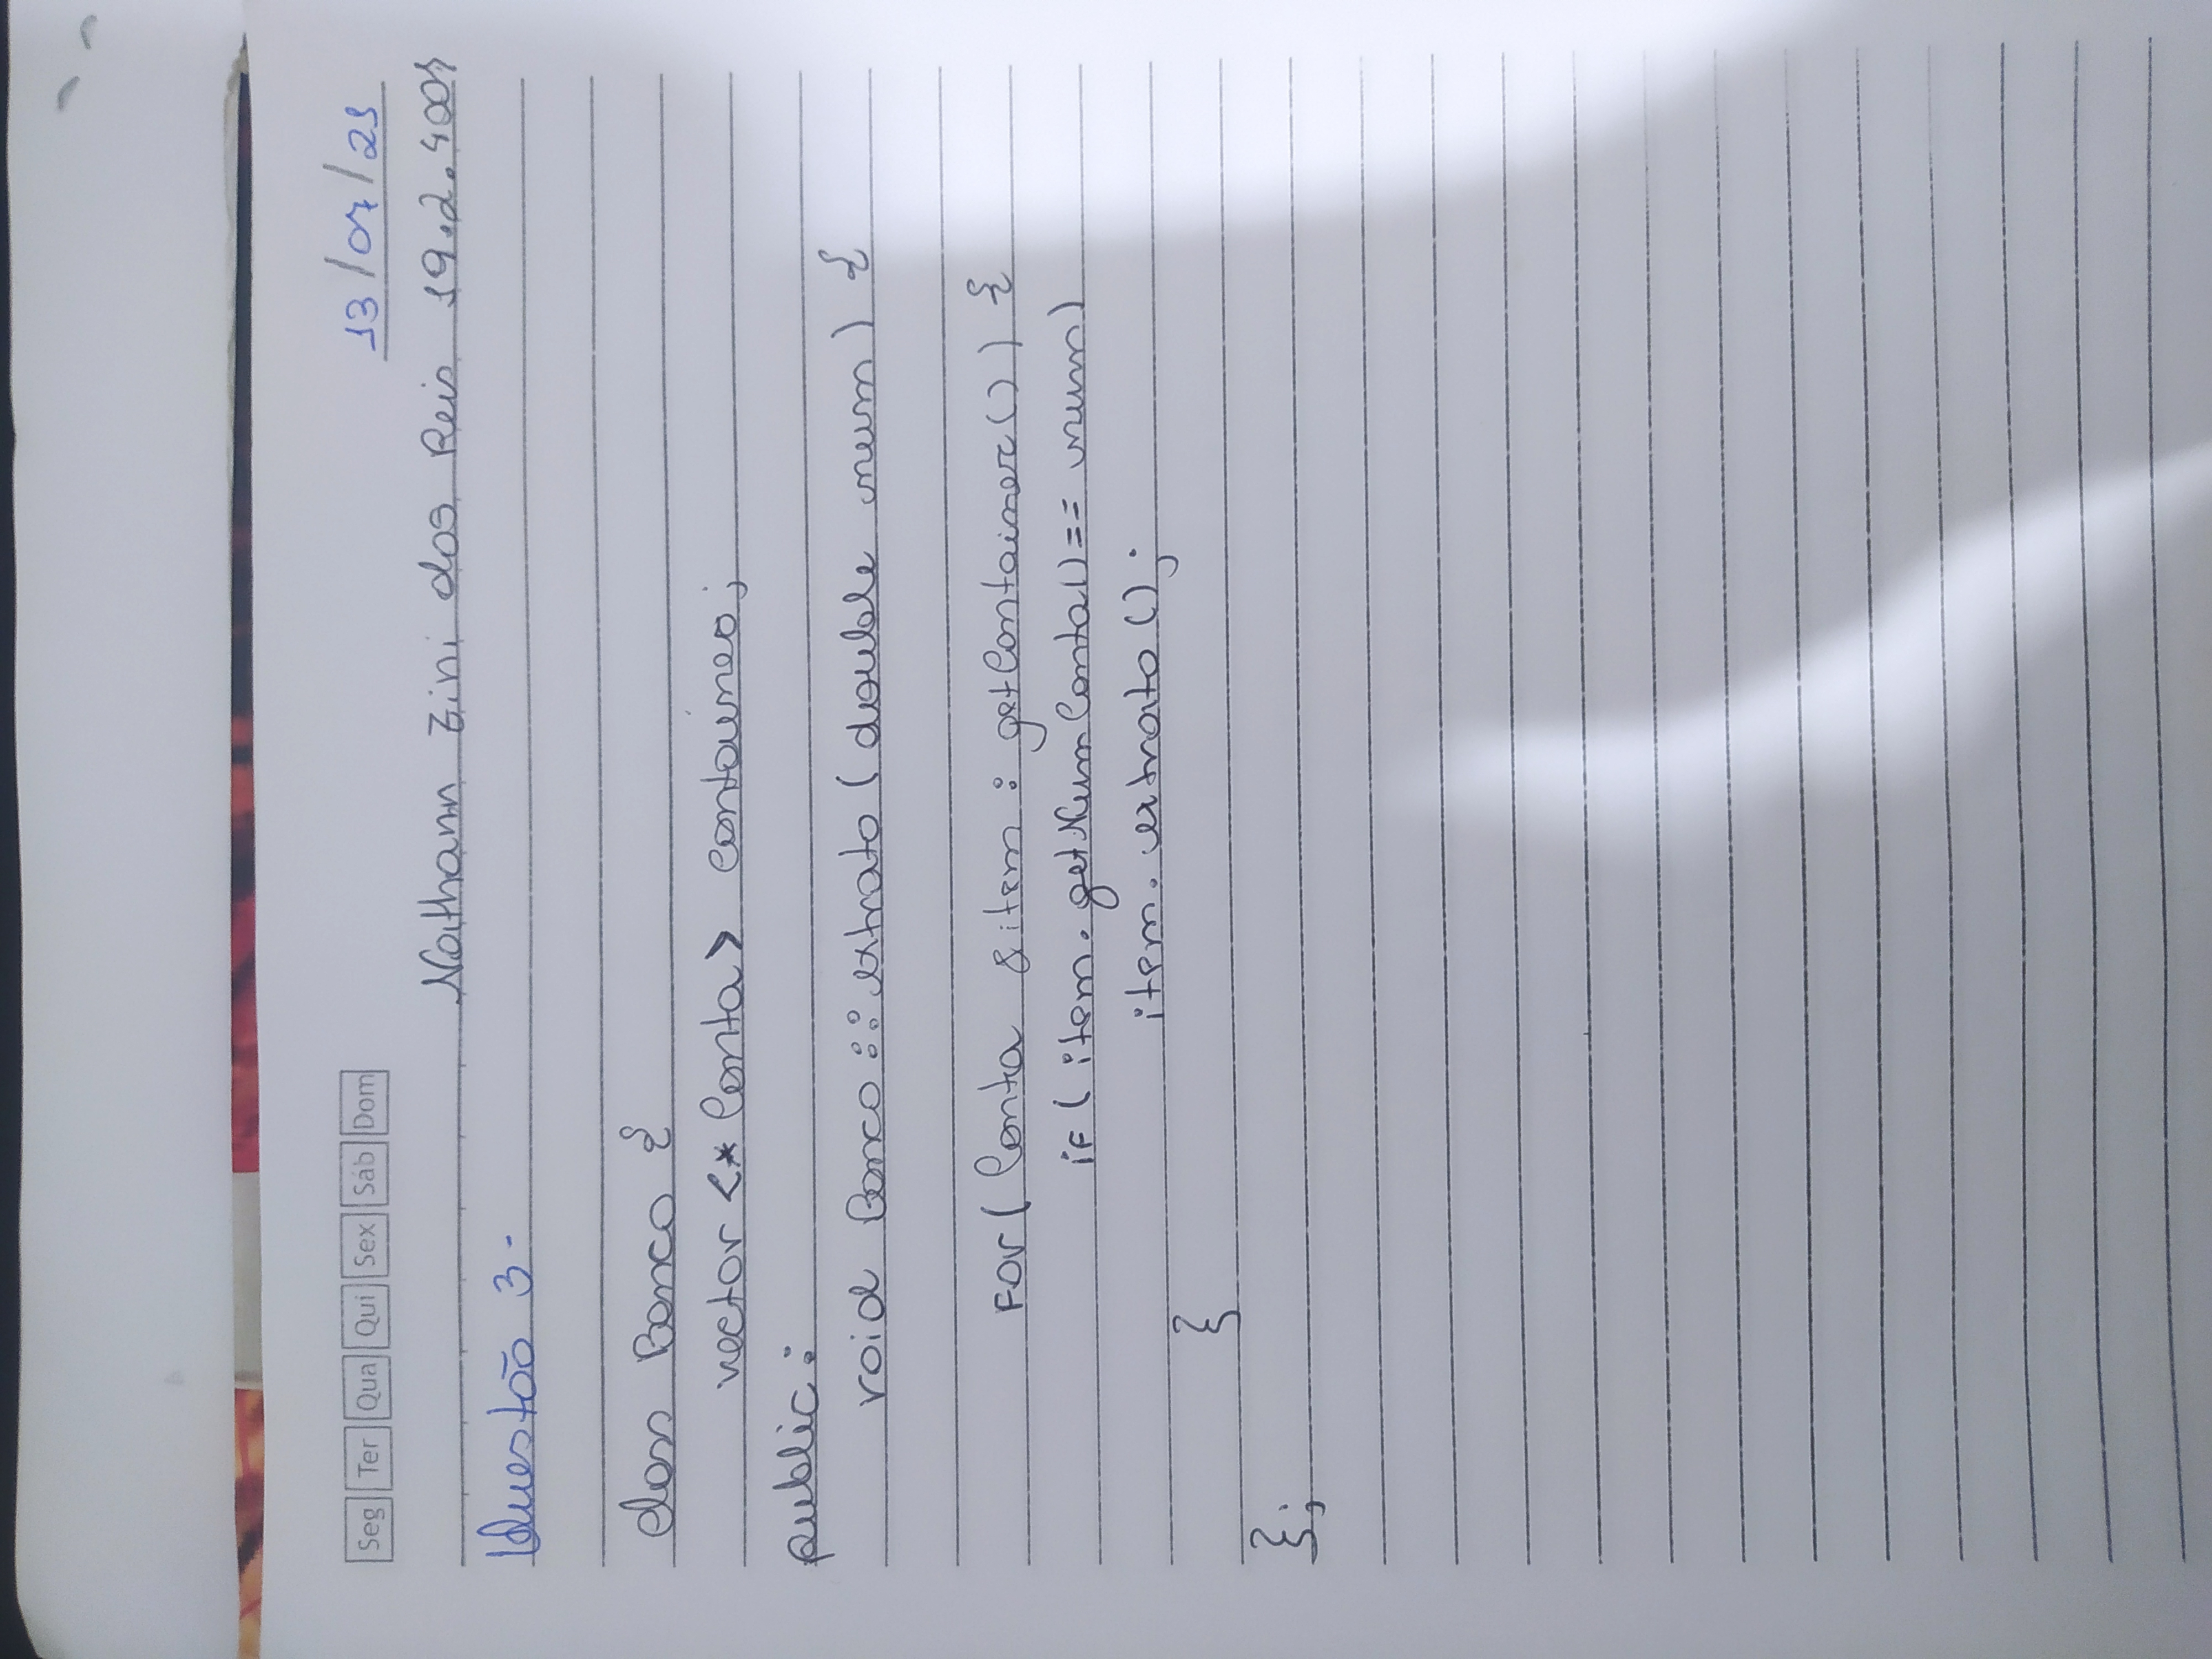 Seg Ter Qua Qui Sex Sáb Dom
Nathann Zini dos Reis 19.2.4007
Questão 3.
class Banco {
vector <* Conta> container;
public:
void Banco :: extrato (double num) {
For (Conta &item : getContainer()) {
if (item.getNumConta() == num)
item.extrato();
}
};